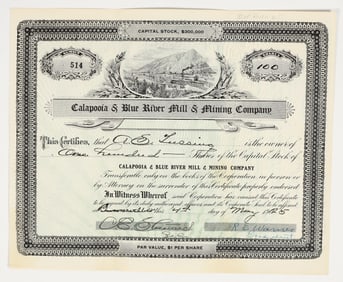 CAPITAL STOCK, $300,000
NUMBER
514
SHARES
100
Calapooia & Blue River Mill & Mining Company
This Certifies, that A. E. Tussing is the owner of
One Hundred Shares of the Capital Stock of
CALAPOOIA & BLUE RIVER MILL & MINING COMPANY
Transferable only on the books of the Corporation, in person or
by Attorney on the surrender of this Certificate properly endorsed
In Witness Whereof said Corporation has caused this Certificate
to be signed by its duly authorized officers and its Corporate Seal to be affixed
this 4th day of May
PAR VALUE, $1 PER SHARE